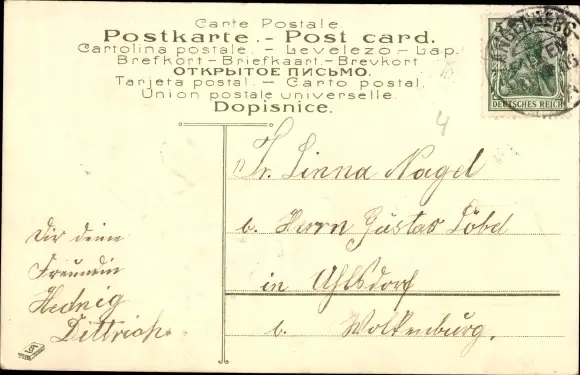 Carte Postale.
Postkarte. - Post card.
Cartolina postale. - Levelezo - Lap.
Brefkort - Briefkaart - Brevkort
ОТКРЫТОЕ ПИСЬМО.
Tarjeta postal. - Carto postal.
Union postale universelle.
Dopisnice.
DEUTSCHES REICH
4
Fr. Linna Nagel
b. Herrn Gustav Löbd
in Uhlsdorf
b. Wolkenburg.
Dir deine
Freundin
Hedwig
Dittrich